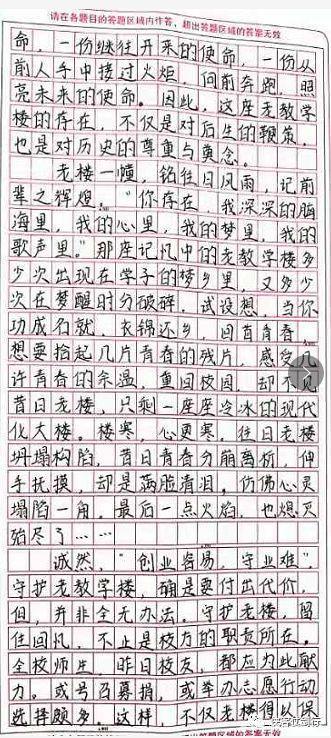 请在各题目的答题区域内作答，超出答题区域的答案无效
命，一份继往开来的使命，一份从
前人手中接过火炬，向前奔跑，照
亮未来的使命。因此，这座老教学
楼的存在，不仅是对后生的鞭策，
也是对历史的尊重与奠念。
老楼一幢，铭往日风雨，记前
辈之辉煌。"你存在，我深深的脑
海里，我的心里，我的梦里，我的
歌声里。"那座记忆中的老教学楼多
少次出现在学子的梦乡里，又多少
次在梦醒时分破碎。试设想，当你
功成名就，衣锦还乡，回首青春，
想要拾起几片青春的残片，感受几
许青春的余温，重回校园，却不见
昔日老楼，只剩一座座冷冰的现代
化大楼。楼寒，心更寒。往日老楼
坍塌构陷，昔日青春分崩离析，伸
手抚摸，却是满脸清泪。仿佛心灵
塌陷一角。最后一点火焰，也熄灭
殆尽了……
诚然，"创业容易，守业难"。
守护老教学楼，确是要付出代价，
但，并非全无办法。守护老楼，留
住回忆，不止是校方的职责所在。
全校师生，昨日校友，都应为此献
力。或号召募捐，或举办志愿行动
选择颇多。这样，不仅老楼得以保